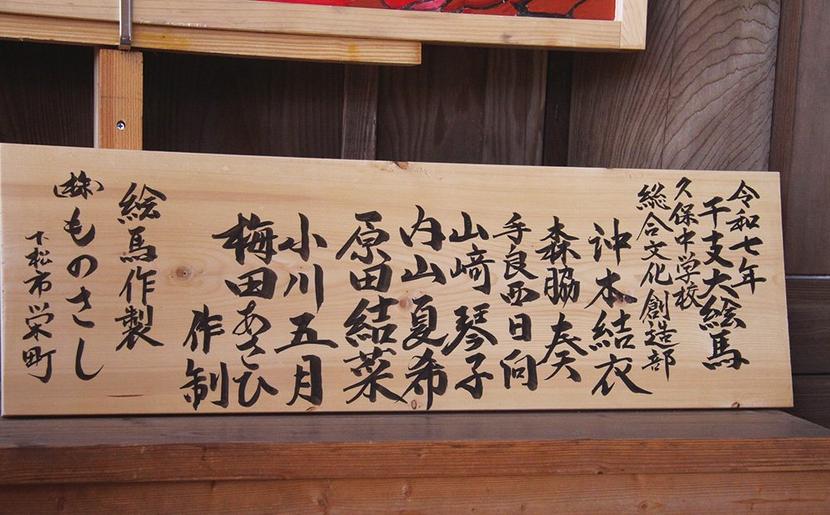 令和七年
干支大絵馬
久保中学校
総合文化創造部
沖本結衣
森脇奏
手良西日向
山﨑琴子
内山夏希
原田結菜
小川五月
梅田あさひ
作制
絵馬作製
㈱ものさし
下松市栄町